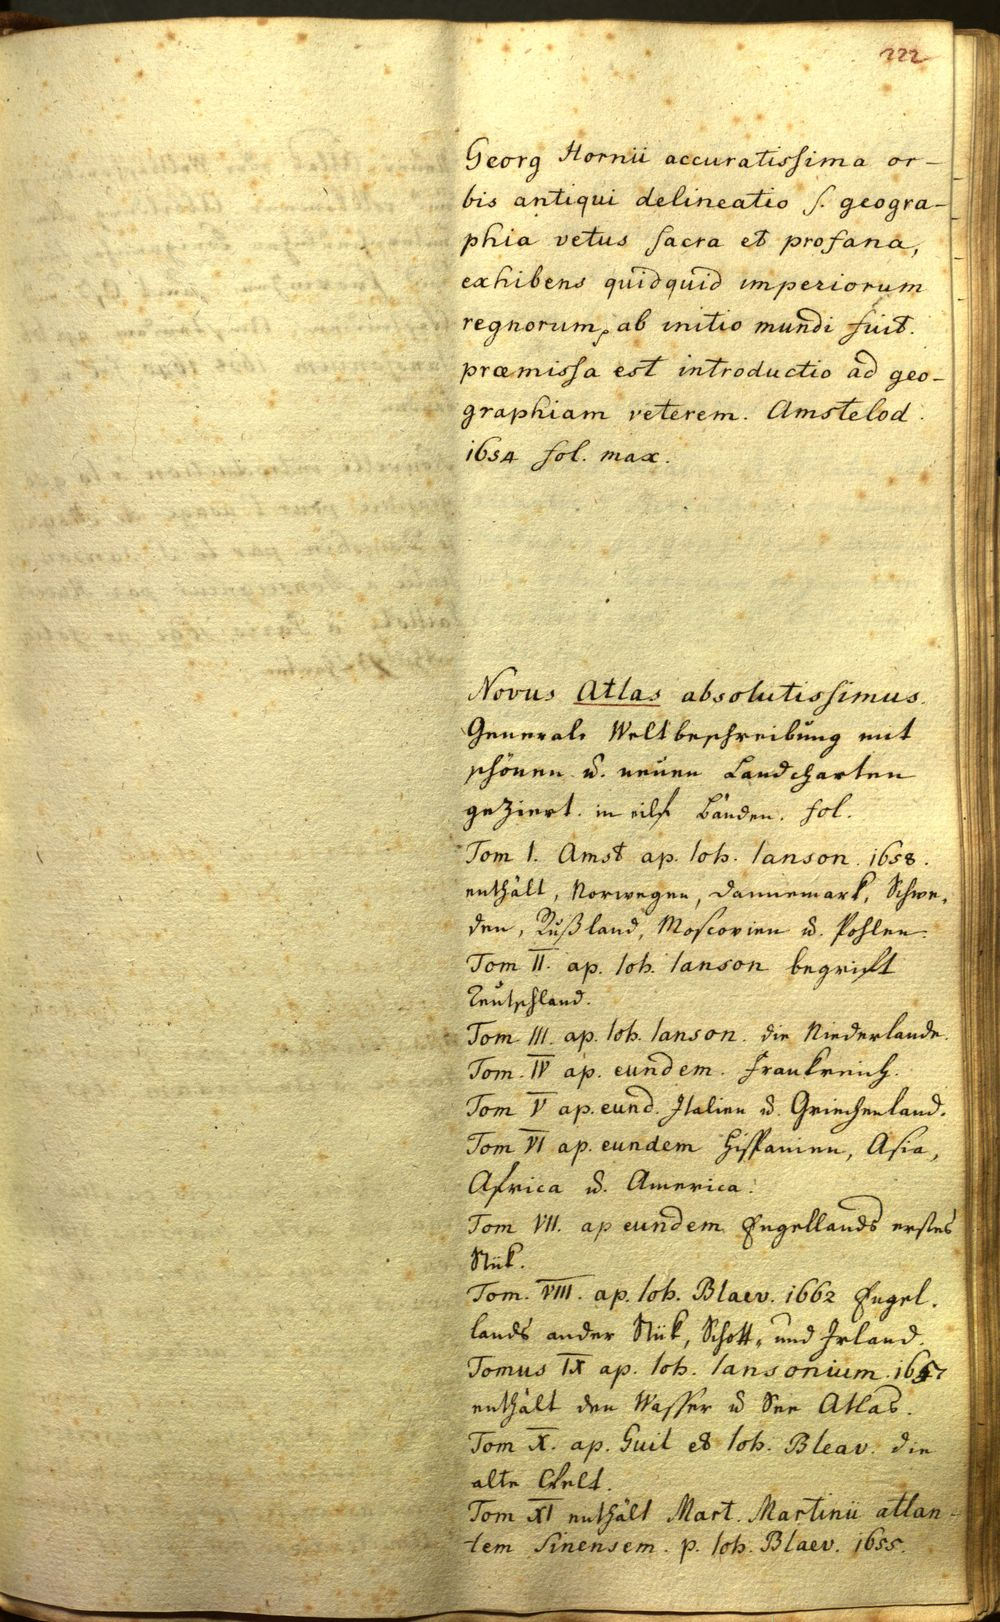 222
Georg Hornii accuratissima or-
bis antiqui delineatio s. geogra-
phia vetus sacra et profana,
exhibens quidquid imperiorum
regnorum, ab initio mundi fuit.
præmissa est introductio ad geo-
graphiam veterem. Amstelod.
1654 fol. max.
Novus Atlas absolutissimus.
General Weltbeschreibung mit
schönen u. neuen Landcharten
geziert. in eilf Bänden. fol.
Tom I. Amst ap. Joh. Janson. 1658.
enthält, Norwegen, Dannemark, Schwe-
den, Rußland, Moscovien u. Pohlen.
Tom II. ap. Joh. Janson begrift
Teutschland.
Tom. III. ap. Joh. Janson. die Niederlande.
Tom. IV ap. eundem. Frankreich.
Tom V ap. eund. Italien u. Griechenland.
Tom VI ap. eundem Hispanien, Asia,
Africa u. America.
Tom VII. ap eundem Engellands erstes
Stük.
Tom. VIII. ap. Joh. Blaev. 1662 Engel-
lands ander Stük, Schott- und Irland.
Tomus IX ap. Joh. Jansonium. 1657
enthält den Wasser u See Atlas.
Tom X. ap. Guil et Joh. Bleav. die
alte Welt.
Tom XI enthält Mart. Martinii atlan-
tem Sinensem. p. Joh. Blaev. 1655.